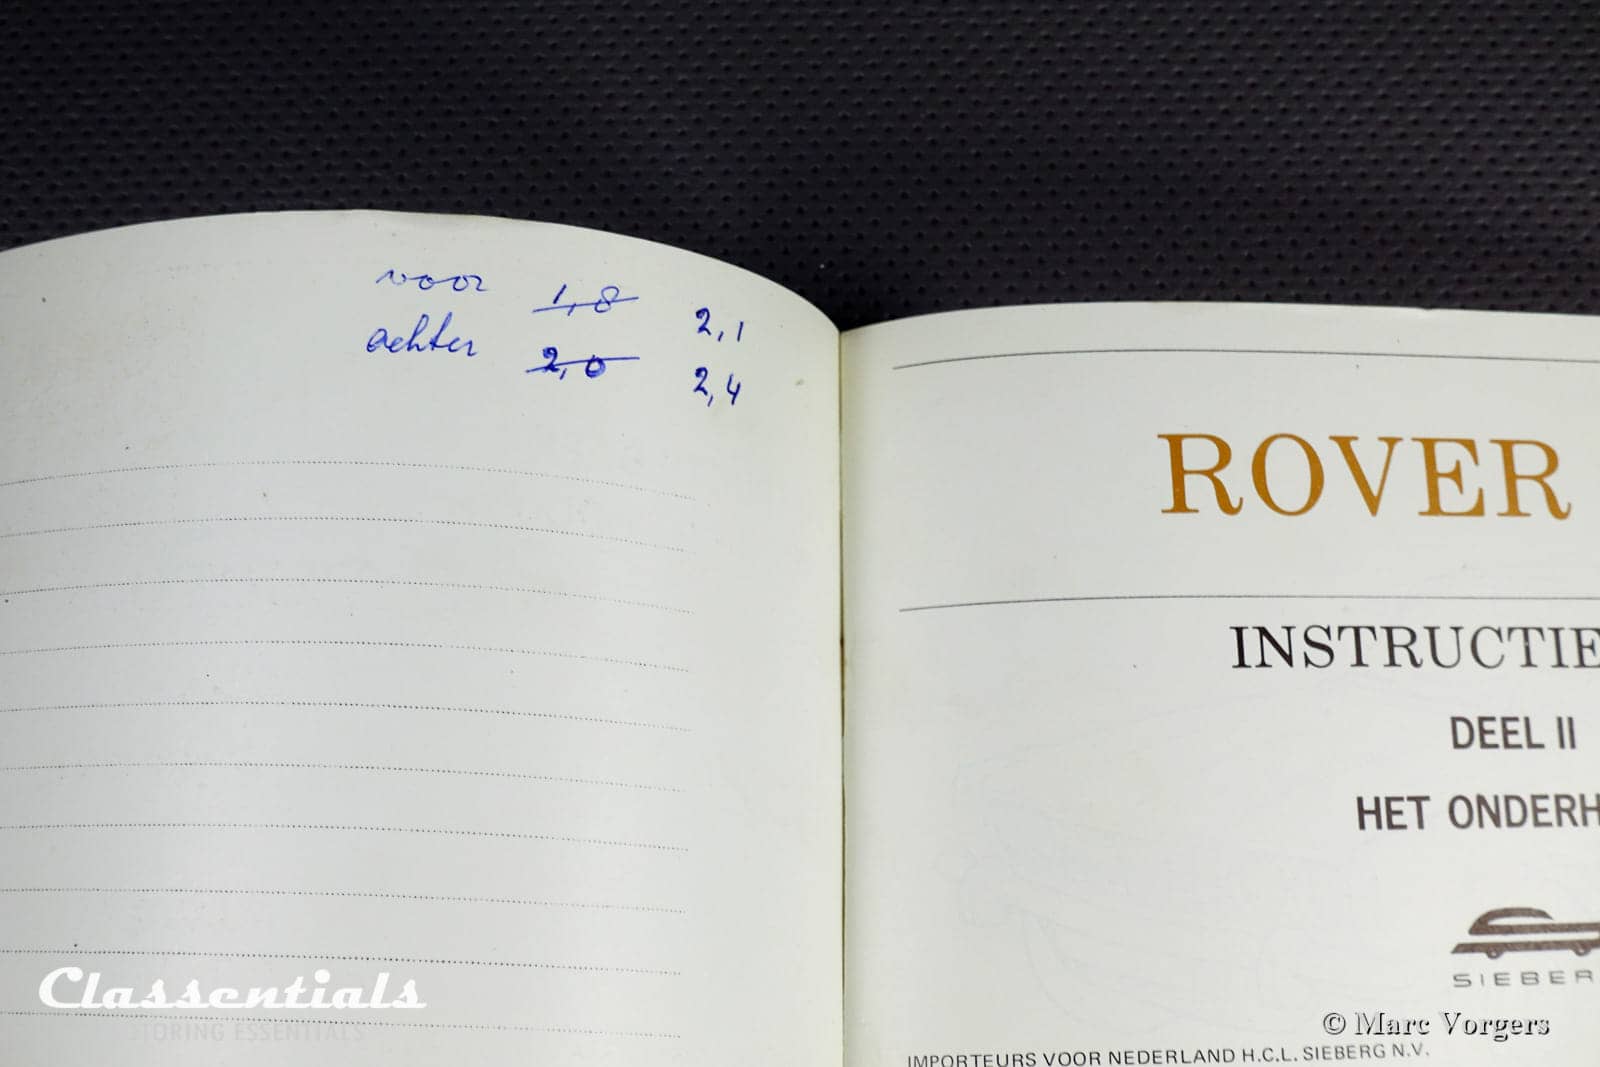 voor 1,8 2,1
achter 2,0 2,4
ROVER
INSTRUCTIE
DEEL II
HET ONDERH
SIEBER
IMPORTEURS VOOR NEDERLAND H.C.L. SIEBERG N.V.
Classentials
TORING ESSENTIALS
© Marc Vorgers